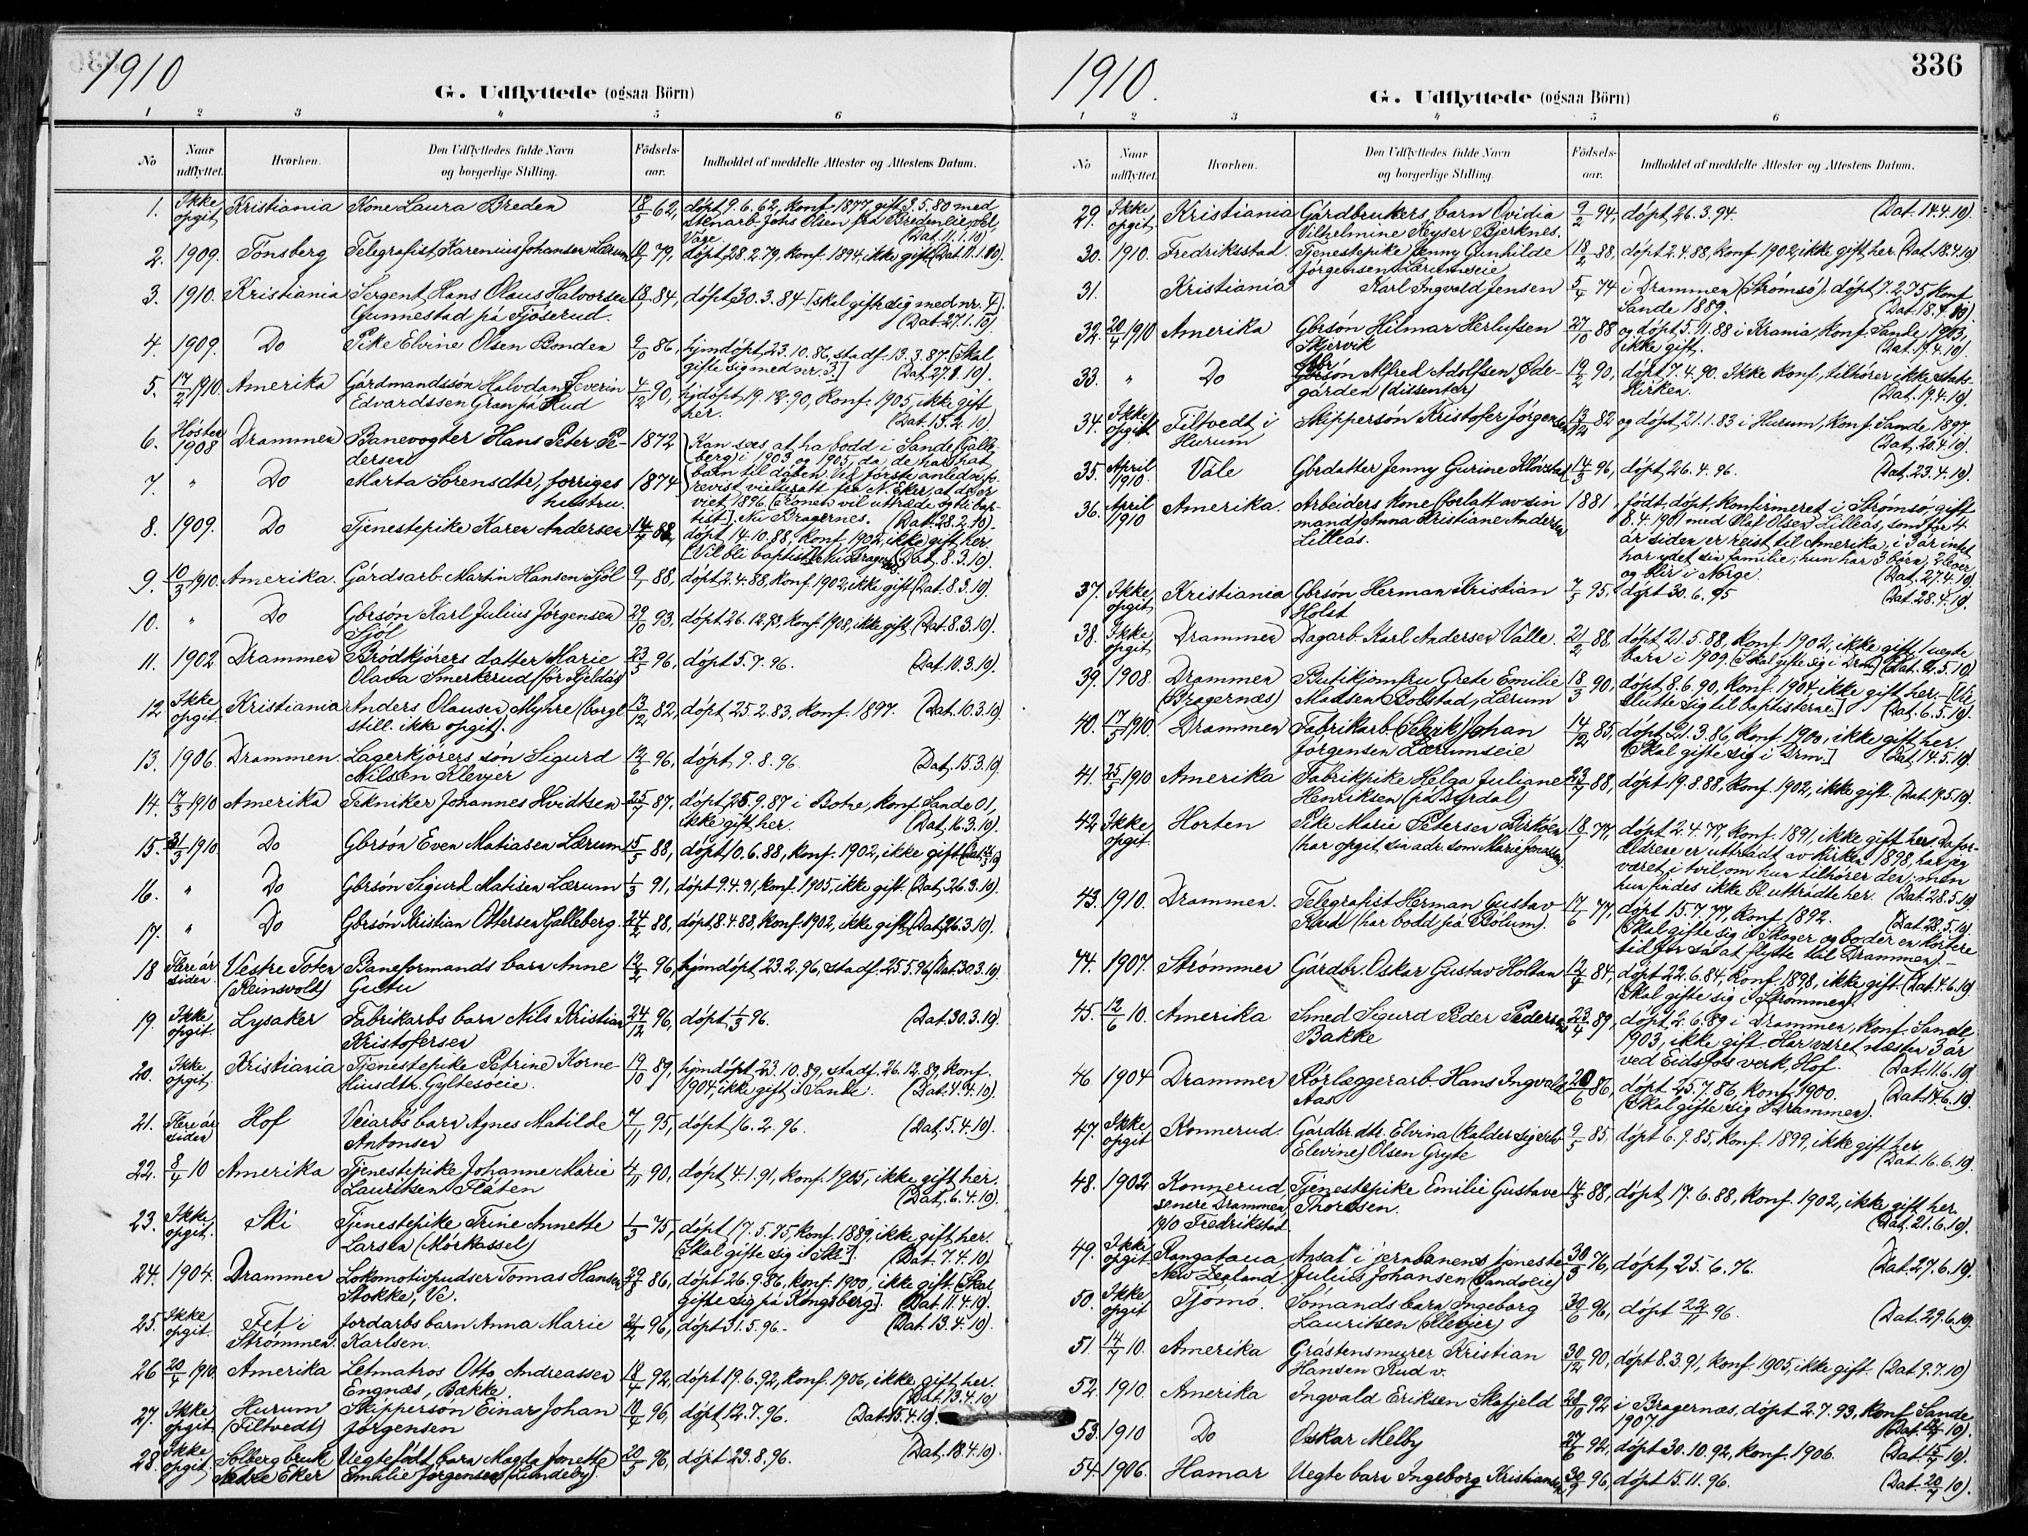 1910
G. Udflyttede (ogsaa Börn)
1 2 3 4 5 6
No
Naar udflyttet.
Hvorhen.
Den Udflyttedes fulde Navn og borgerlige Stilling.
Födsels-aar.
Indholdet af meddelte Attester og Attestens Datum.
1. Ikke opgit Kristiania Kone Laura Breden 18/5 62, döpt 9.6.62, konf. 1877, gift 3.5.80 med
Stenarb. Johs Olsen fra Bredenlie
Våge. (Dat. 11.1.10)
2. 1909. Tönsberg Telegrafist Karenius Johansen Lærum 79, döpt 28.2.79, konf. 1894, ikke gift (Dat. 11.1.10).
3. 1910. Kristiania Sergent Hans Olaus Halvorsen 84, döpt 30.3.84 [skal gifte sig med nr. 4].
Gunnestad på Tjöserud. (Dat. 27.1.10).
4. 1909. Do Pike Elvine Olsen Bonden 9/10 86, hjmdöpt 23.10.86, stadf. 13.3.87. [Skal
gifte sig med nr. 3.] (Dat. 27.1.10).
5. 17/2 1910. Amerika Gårdmandssön Halvdan Severin 4/12 90, hjdöpt 19.12.90, Konf. 1905, ikke gift
Edvardssen Gran på Rud her. (Dat. 13.2.10).
6. Hösten 1908 Drammen Banevogter Hans Peter Pe- 1872 Kan sees at ha bodd i Sande (Galle-
dersen berg) i 1903 og 1905, da de har hat
7. " Do Marta Sorensdtr, forriges 1874 barn til dåpen. Ved förste anledn. fo-
hustru. revist vielsesatt fra N. Eker, at de er
viet 1896. [Konen vil uttræde og bli bap-
tist]. Nu Bragernes. (Dat. 28.2.10).
8. 1909. Do Tjenestepike Karen Andersen 14/7 88, döpt 14.10.88, konf. 1902, ikke gift her.
(Vil bli baptist. Nu Bragernes) (Dat. 8.3.10).
9. 10/3 1910. Amerika. Gårdsarb. Martin Hansen Sjöl 9/1 88, döpt 2.4.88, konf. 1902, ikke gift (Dat. 8.3.10).
10. " Do Gbrsön Karl Julius Jörgensen 29/10 93, döpt 26.12.93, konf. 1908, ikke gift (Dat. 8.3.10).
Sjöl
11. 1902 Drammen Brödkjörers datter Marie 23/5 96, döpt 5.7.96. (Dat. 10.3.10).
Olava Smerkerud (för Fjeldås)
12 Ikke opgit Kristiania Anders Olausen Myhre (borgl. 13/12 82, döpt 25.2.83, Konf. 1897. (Dat. 10.3.10).
still. ikke opgit).
13. 1906. Drammen. Lagerkjörers sön Sigurd 12/6 96, döpt 9.8.96. (Dat. 15.3.10).
Nilsen Klever
14. 17/3 1910 Amerika Tekniker Johannes Hvidtsen 25/7 87, döpt 25.9.87 i Botne, konf. Sande 01,
ikke gift her. (Dat. 16.3.10).
15. 31/3 1910. Do Gbrsön Even Matiasen Lærum 15/5 88, döpt 10.6.88, konf. 1902, ikke gift
16. " Do Gbrsön Sigurd Matisen Lærum 1/3 91, döpt 9.4.91, konf. 1905, ikke gift. (Dat. 26.3.10).
17. " Do Gbrsön Kristian Ottersen Galleberg. 24/2 88, döpt 8.4.88, konf. 1902, ikke gift (Dat. 26.3.10).
18 Flere år siden Vestre Toten (Reinsvold) Baneformands barn Anne 12/2 96, hjmdöpt 23.2.96, stadf. 25.5.96 (Dat. 30.3.10).
Gurtu
19. Ikke opgit. Lysaker Fabrikarbs barn Nils Kristian 24/12 96, döpt 1/3 96. (Dat. 30.3.10).
Kristofersen
20. Ikke opgit. Kristiania Tjenestepike Petrine Korne- 19/10 89, hjmdöpt 23.10.89, stadf. 26.12.89, Konf.
liusdtr. Gyltesöeie. 1904, ikke gift i Sande. (Dat. 4.4.10).
21. Flere år siden Hof Veiarbs barn Agnes Matilde 7/11 95, döpt 16.2.96. (Dat. 5.4.10).
Antonsen
22. 8/4 10 Amerika Tjenestepike Johanne Marie 4/11 90, döpt 4.1.91, Konf. 1905, ikke gift her.
Lauritsen Flåten (Dat. 6.4.10).
23. Ikke opgit. Ski Tjenestepike Trine Annette 1/3 75, döpt 17.5.75, konf. 1889, ikke gift her.
Larsen (Mörkassel) [Skal gifte sig i Ski]. (Dat. 7.4.10)
24. 1904. Drammen Lokomotivpudser Tomas Hansen 29/8 86, döpt 26.9.86, konf. 1900, ikke gift. [Skal
Stokke, V. gifte sig på Kongsberg]. (Dat. 11.4.10).
25. Ikke opgit. Fet i Strömmen. Jordarbs barn Anna Marie 96, döpt 31.5.96. (Dat. 13.4.10).
Karlsen.
26 20/4 1910. Amerika Letmatros Otto Andreassen 18/4 92, döpt 19.6.92, konf. 1906, ikke gift her.
Engnæs, Bakke. (Dat. 13.4.10)
27. Ikke opgit Hurum (Tiltvedt) Skipperssön Einar Johan 10/4 96, döpt 12.7.96. (Dat. 15.4.10).
Jörgensen
28. Ikke opgit Solberg bruk Nedre Eker Uegtefödt barn Magda Jonette 20/5 96, döpt 23.8.96. (Dat. 18.4.10).
Emilie Jörgensen (Lundeby).
1910.
336
G. Udflyttede (ogsaa Börn)
1 2 3 4 5 6
No
Naar udflyttet.
Hvorhen.
Den Udflyttedes fulde Navn og borgerlige Stilling.
Födsels-aar.
Indholdet af meddelte Attester og Attestens Datum.
29. Ikke opgit. Kristiania Gårdbrukers barn Ovidia 9/2 94, döpt 26.3.94. (Dat. 14.4.10).
Vilhelmine Keyser Bjerknes.
30. 1910. Fredriksstad. Tjenestepike Jenny Gunhilde 18/2 88, döpt 2.4.88, konf. 1902, ikke gift her. (Dat. 18.4.10)
Jörgensen Lærumseie
31. Kristiania Karl Ingvald Jensen 5/4 74 i Drammen (Strömsö), döpt 7.2.75, konf.
Sande 1889. (Dat. 18.4.10).
32. 20/4 1910 Amerika Gbrsön Hilmar Herlufsen 27/10 88 og döpt 5.11.88 i Krania, konf. Sande 1903,
Skjervik ikke gift. (Dat. 19.4.10).
33. " Do Gbrsön Alfred Adolfsen Öde- 12/2 90, döpt 7.4.90. Ikke Konf., tilhörer ikke Stats-
gården (dissenter) kirken. (Dat. 19.4.10).
34. Ikke opgit Tiltvedt i Hurum Skipperssön Kristofer Jörgensen 13/12 82 og döpt 21.1.83 i Hurum, konf. Sande 1897
(Dat. 20.4.10).
35. April 1910. Våle Gbrdatter Jenny Gurine Klövstad 14/3 96, döpt 26.4.96. (Dat. 23.4.10).
36. April 1910 Amerika. Arbeiders Kone (forlatt av sin 1881, födt, döpt, konfirmeret i Strömsö, gift
mand) Anna Kristiane Andersen 8.4.1901 med Olaf Olsen Lilleås, som for 4
Lilleås. år siden er reist til Amerika, i 3 år intet
har ydet sin familie; hun har 3 börn, 2 lever
og blir i Norge. (Dat. 27.4.10)
37. Ikke opgit. Kristiania Gbrsön Herman Kristian 7/5 95. döpt 30.6.95 (Dat. 28.4.10).
Holst
38. Ikke opgit Drammen Dagarb. Karl Andersen Valle. 21/2 88. döpt 21.5.88, konf. 1902, ikke gift, 1 uegte
barn i 1909. (Skal gifte sig i Drm) (Dat. 4.5.10).
39. 1908. Drammen (Bragernæs) Butikjomfru Grete Emilie 18/3 90, döpt 8.6.90, konf. 1904, ikke gift her. [Vil
Madsen Bolstad, Lærum slutte sig til baptisterne]. (Dat. 6.5.10).
40. 17/5 1910. Drammen Fabrikarb. (Selvik) Johan 14/12 85, döpt 21.3.86, Konf. 1900, ikke gift her.
Jörgensen Lærumseie (Skal gifte sig i Drm.] (Dat. 14.5.10).
41. 25/5 1910 Amerika Fabrikpike Helga Juliane 23/7 88, döpt 19.8.88, Konf. 1902, ikke gift. (Dat. 19.5.10).
Henriksen (på Dyrdal)
42 Ikke opgit. Horten Pike Marie Petersen Birköen 18/1 77, döpt 2.4.77, Konf. 1891, ikke gift her. Da for-
(har opgit sin adr. som Marie Jonassen) ældrene er uttrådt av kirken 1898, har jeg
været i tvil, om hun tilhörer den; men
hun findes ikke bl. uttrådte her. (Dat. 28.5.10)
43. 1910. Drammen. Telegrafist Herman Gustav 17/6 77, döpt 15.7.77, konf. 1892. (Dat. 28.5.10).
Rud (har bodd på Bölum). (Skal gifte sig i Skoger og bo der en kortere
tid for så at flytte til Drammen).
44. 1907. Strömmen Gårdbr. Oskar Gustav Holtan 12/4 84, döpt 22.6.84, Konf. 1898, ikke gift. (Dat. 4.6.10).
(Skal gifte sig i Strömmen).
45. 12/6 10. Amerika Smed Sigurd Peder Pedersen 23/4 89, döpt 2.6.89 i Drammen, konf. Sande
Bakke 1903, ikke gift. Har været næsten 3 år
ved Eidsfos verk, Hof. (Dat. 11.6.10)
46. 1904 Drammen Rörlæggerarb. Hans Ingvald 20/6 86, döpt 25.7.86, konf. 1900. (Dat. 14.6.10).
Aas (Skal gifte sig i Drammen).
47. Ikke opgit Konnerud. Gårdbr. dtr. Elvina (kalder sig selv 9/5 85, döpt 6.9.85, Konf. 1899, ikke gift her.
Elevine) Olsen Gryte (Dat. 16.6.10).
48. 1902 Konnerud, senere Drammen, 1910 Fredrikstad. Tjenestepike Emilie Gustava 14/5 88, döpt 17.6.88, konf. 1902, ikke gift her.
Thoresen. (Dat. 21.6.10).
49. Ikke opgit Rangataua, New Zealand. Ansat i jernbanens tjeneste 30/3 76, döpt 25.6.76. (Dat. 27.6.10).
Julius Johansen (Sandseie)
50. Ikke opgit Tjömö. Sömands barn Ingeborg 30/6 96, döpt 22/11 96. (Dat. 29.6.10).
Lauritsen (Klevjer)
51. 14/7 10. Amerika Gråstensmurer Kristian 30/12 90, döpt 8.3.91, konf. 1905, ikke gift. (Dat. 9.7.10)
Hansen Rud v.
52. 1910. Amerika Ingvald Eriksen Skafjeld 28/10 92 i Bragernæs, döpt 2.7.93, konf. Sande
1907.
53. 1910 Do Oskar Melby 27/6 92, döpt 30.10.92, konf. 1906. (Dat. 15/7 10).
54. 1906. Hamar Uegte barn Ingeborg Kristiansen 30/9 96, döpt 15.11.96. (Dat. 20/7 10).